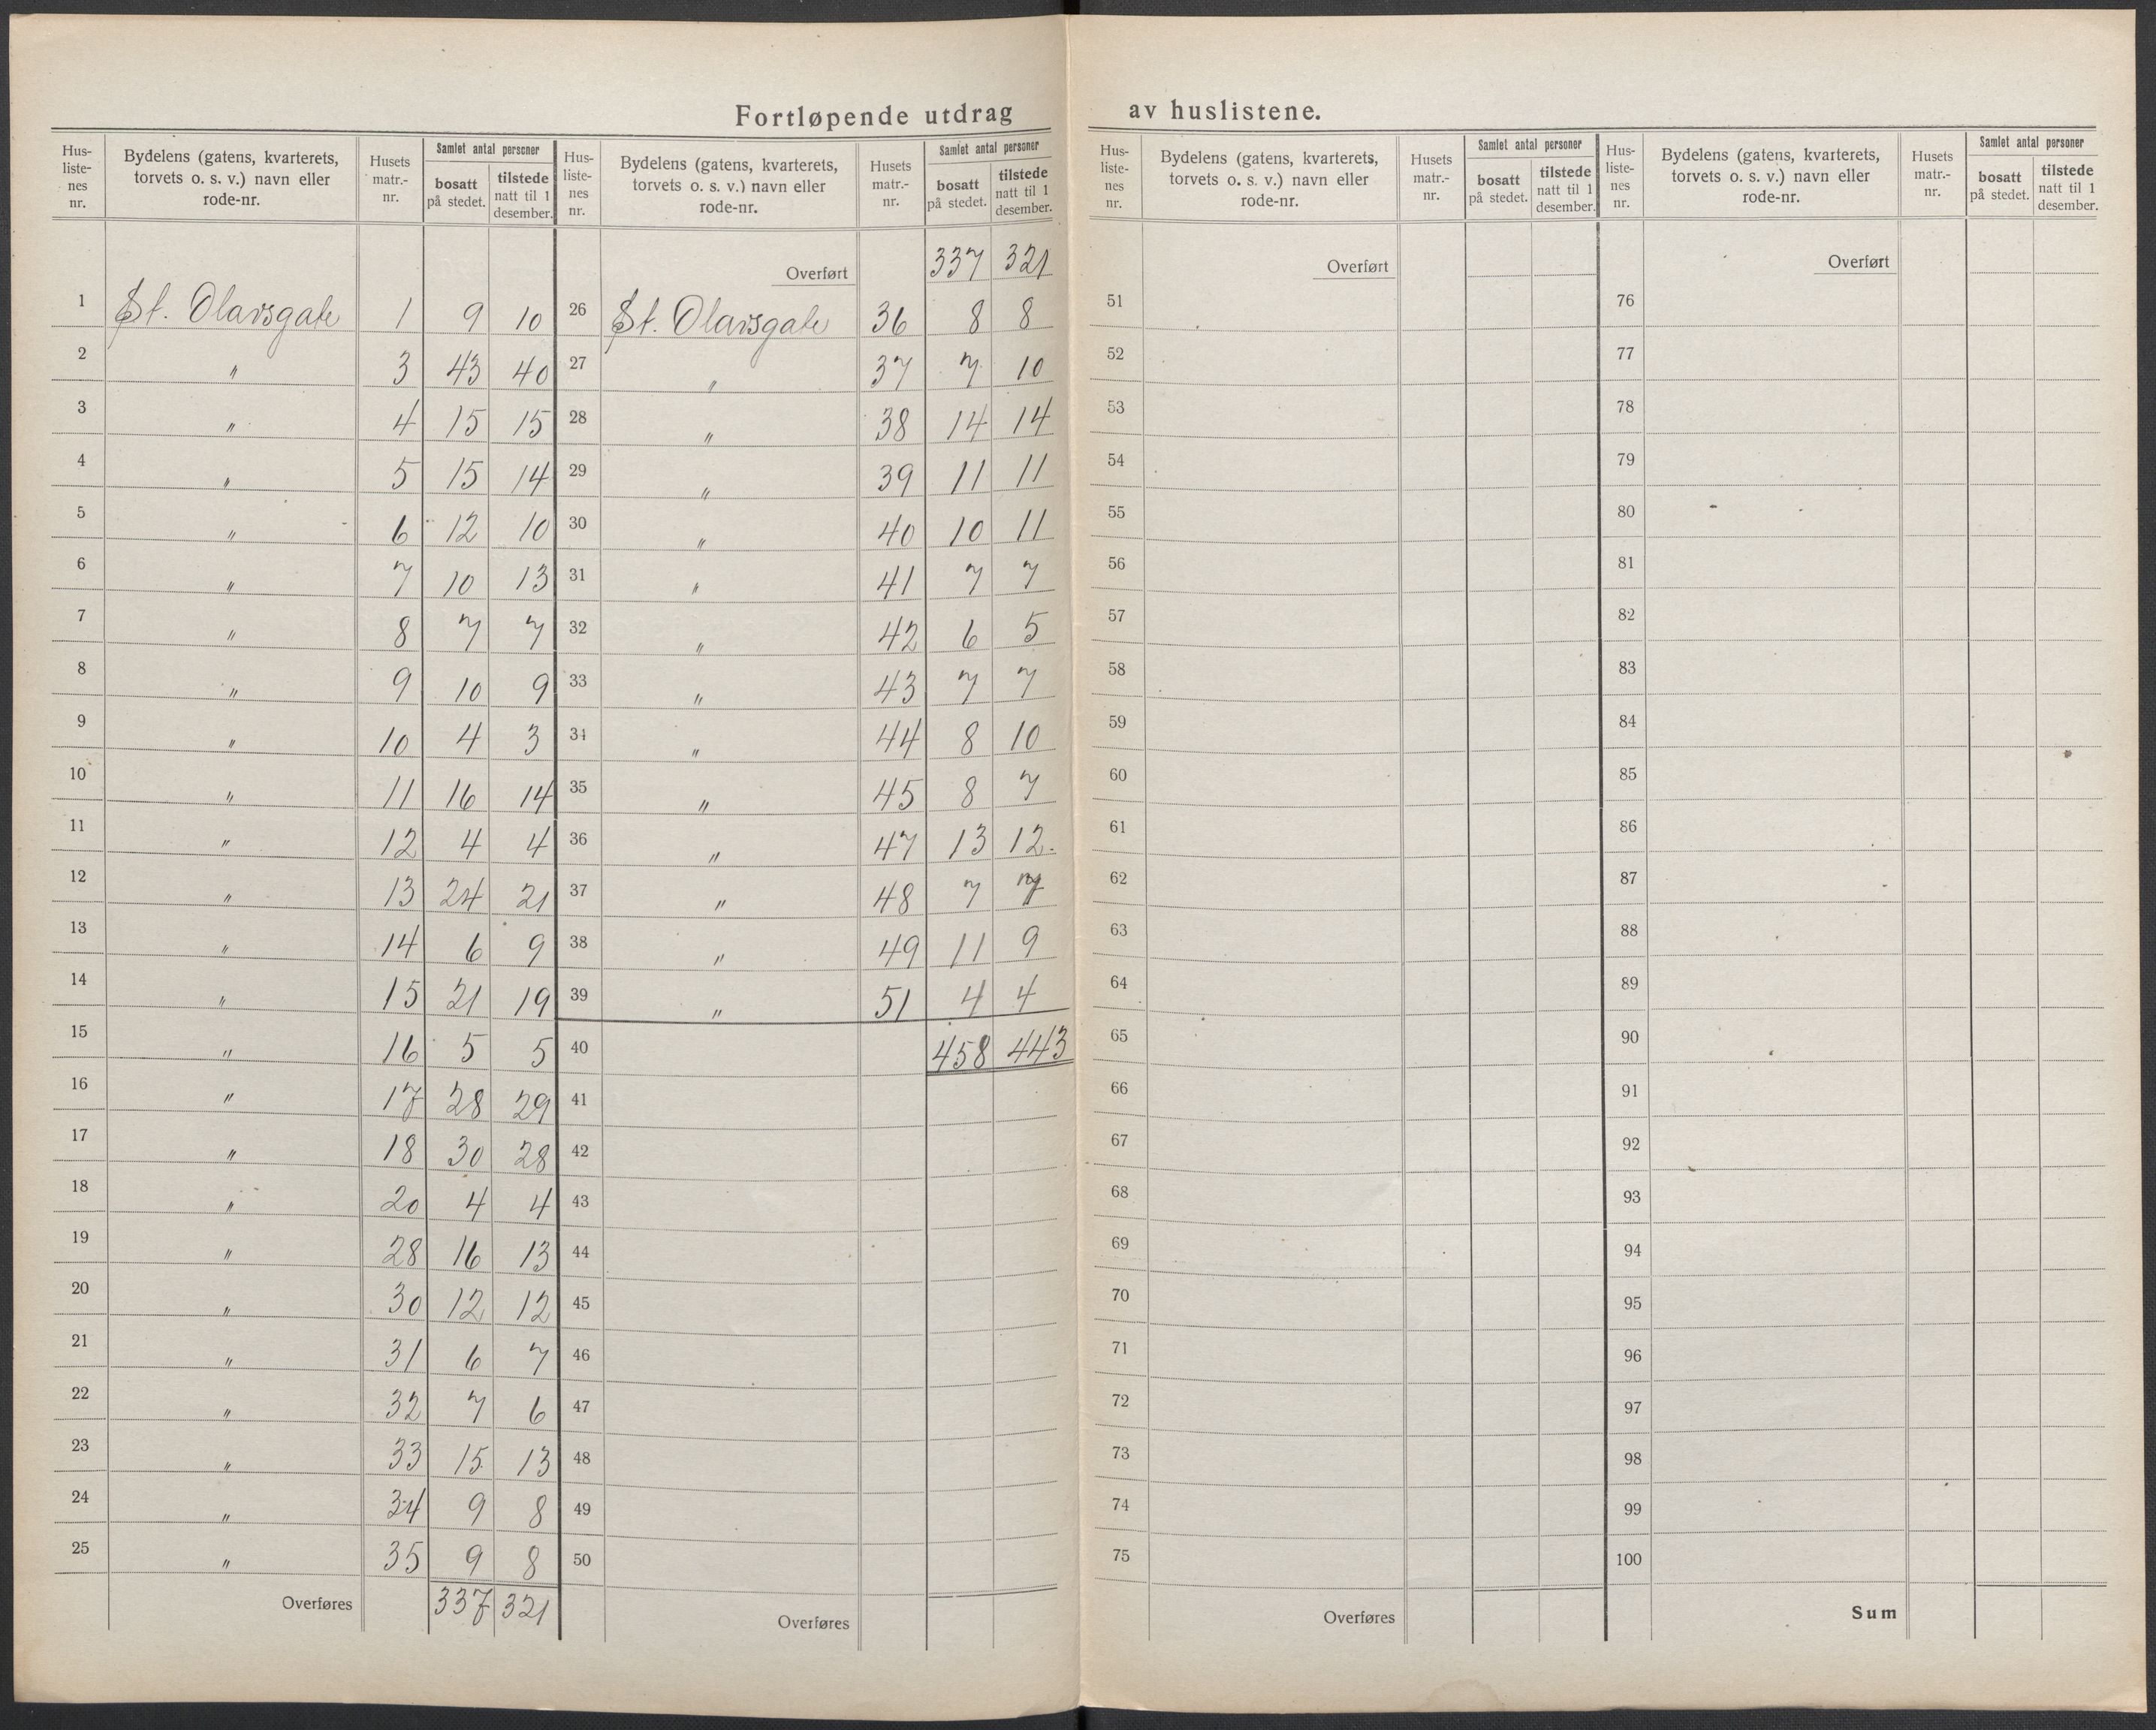 Fortløpende utdrag av huslistene.
Hus-liste-nes nr. | Bydelens (gatens, kvarterets, torvets o. s. v.) navn eller rode-nr. | Husets matr.-nr. | Samlet antal personer bosatt på stedet. | tilstede natt til 1 desember.
1 St. Olavsgate 1 9 10
2 " 3 43 40
3 " 4 15 15
4 " 5 15 14
5 " 6 12 10
6 " 7 10 13
7 " 8 7 7
8 " 9 10 9
9 " 10 4 3
10 " 11 16 14
11 " 12 4 4
12 " 13 24 21
13 " 14 6 9
14 " 15 21 19
15 " 16 5 5
16 " 17 28 29
17 " 18 30 28
18 " 20 4 4
19 " 28 16 13
20 " 30 12 12
21 " 31 6 7
22 " 32 7 6
23 " 33 15 13
24 " 34 9 8
25 " 35 9 8
Overføres 337 321
Hus-liste-nes nr. | Bydelens (gatens, kvarterets, torvets o. s. v.) navn eller rode-nr. | Husets matr.-nr. | Samlet antal personer bosatt på stedet. | tilstede natt til 1 desember.
Overført 337 321
26 St. Olavsgate 36 8 8
27 " 37 7 10
28 " 38 14 14
29 " 39 11 11
30 " 40 10 11
31 " 41 7 7
32 " 42 6 5
33 " 43 7 7
34 " 44 8 10
35 " 45 8 7
36 " 47 13 12.
37 " 48 7 7
38 " 49 11 9
39 " 51 4 4
40 458 443
41
42
43
44
45
46
47
48
49
50
Overføres
Hus-liste-nes nr. | Bydelens (gatens, kvarterets, torvets o. s. v.) navn eller rode-nr. | Husets matr.-nr. | Samlet antal personer bosatt på stedet. | tilstede natt til 1 desember.
Overført
51
52
53
54
55
56
57
58
59
60
61
62
63
64
65
66
67
68
69
70
71
72
73
74
75
Overføres
Hus-liste-nes nr. | Bydelens (gatens, kvarterets, torvets o. s. v.) navn eller rode-nr. | Husets matr.-nr. | Samlet antal personer bosatt på stedet. | tilstede natt til 1 desember.
Overført
76
77
78
79
80
81
82
83
84
85
86
87
88
89
90
91
92
93
94
95
96
97
98
99
100
Sum